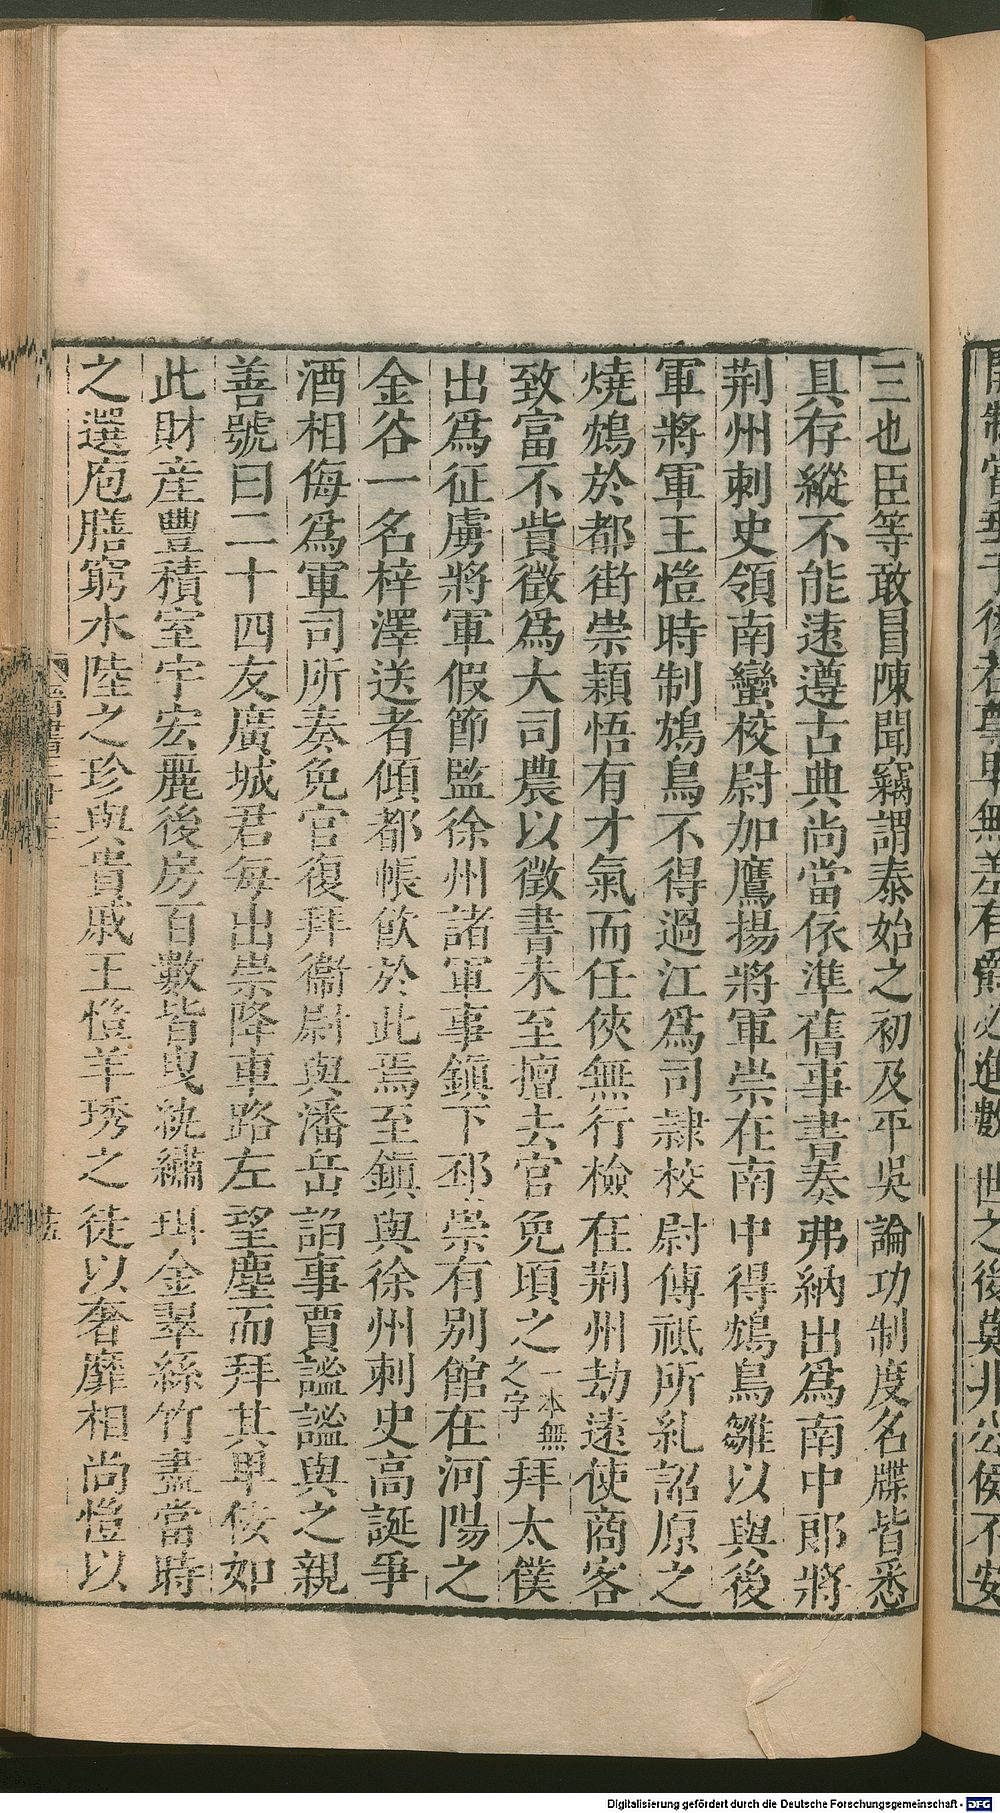 三也臣等敢冒陳聞竊謂泰始之初及平吳論功制度名牒皆悉
具存縱不能遠遵古典尚當依準舊事書奏弗納出爲南中郎將
荆州刺史領南蠻校尉加鷹揚將軍崇在南中得鴆鳥雛以與後
軍將軍王愷時制鴆鳥不得過江爲司隷校尉傅祗所糺詔原之
燒鴆於都街崇穎悟有才氣而任俠無行檢在荆州劫遠使商客
致富不貲徵爲大司農以徵書未至擅去官免頃之一本無之字拜太僕
出爲征虜將軍假節監徐州諸軍事鎭下邳崇有別館在河陽之
金谷一名梓澤送者傾都帳飮於此焉至鎭與徐州刺史高誕爭
酒相侮爲軍司所奏免官復拜衞尉與潘岳諂事賈謐謐與之親
善號曰二十四友廣城君每出崇降車路左望塵而拜其卑佞如
此財産豐積室宇宏麗後房百數皆曳紈繡珥金翠絲竹盡當時
之選庖膳窮水陸之珍與貴戚王愷羊琇之徒以奢靡相尚愷以
Digitalisierung gefördert durch die Deutsche Forschungsgemeinschaft - DFG